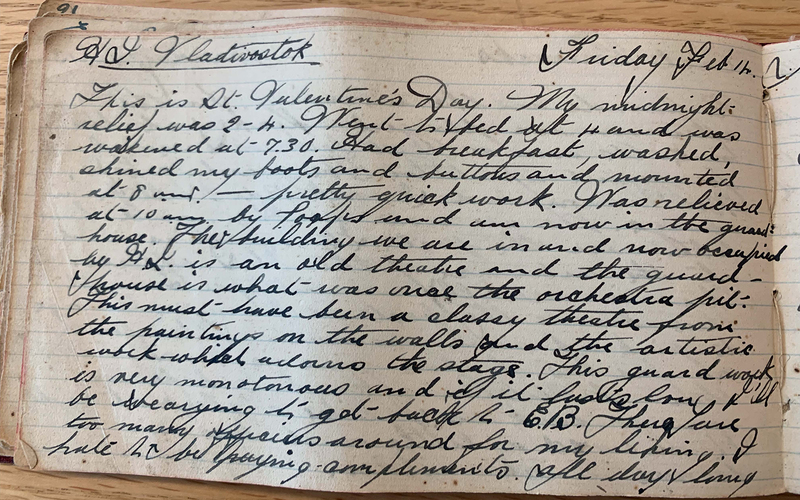 91
H.Q. Vladivostok Friday Feb 14.
This is St. Valentine's Day. My midnight
relief was 2-4. Went to bed at 4 and was
wakened at 7.30. Had breakfast, washed,
shined my boots and buttons and mounted
at 8 am. — pretty quick work. Was relieved
at 10 am by and am now in the guard-
house. The building we are in and now occupied
by H.Q. is an old theatre and the guard-
house is what was once the orchestra pit.
This must have been a classy theatre from
the paintings on the walls and the artistic
work which adorns the stage. This guard work
is very monotonous and if it lasts long I'll
be wearying to get back to E.B. There are
too many officers around for my liking. I
hate to be paying compliments all day long